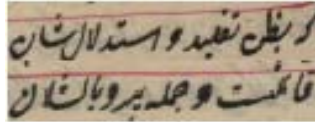 کر بظن تقلید و استدلال‌شان
قائمست و جمله پر و بالشان